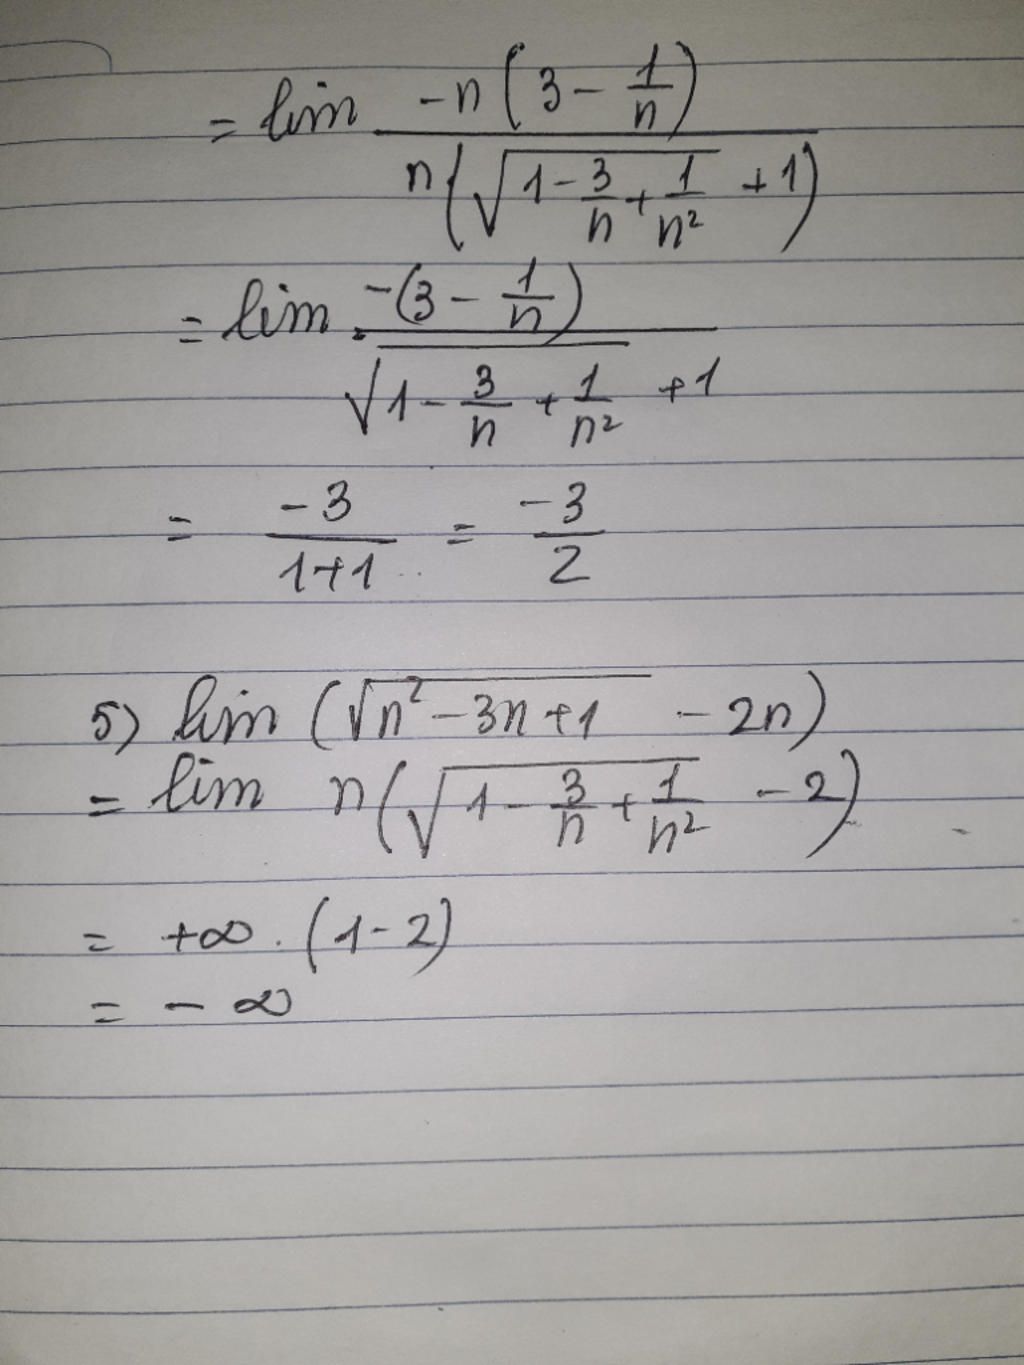 = lim -n(3 - 1/n) / n(√(1 - 3/n + 1/n²) + 1)
= lim -(3 - 1/n) / √(1 - 3/n + 1/n²) + 1
= -3/(1+1) = -3/2
5) lim (√(n² - 3n + 1) - 2n)
= lim n(√(1 - 3/n + 1/n²) - 2)
= +∞ . (1 - 2)
= - ∞